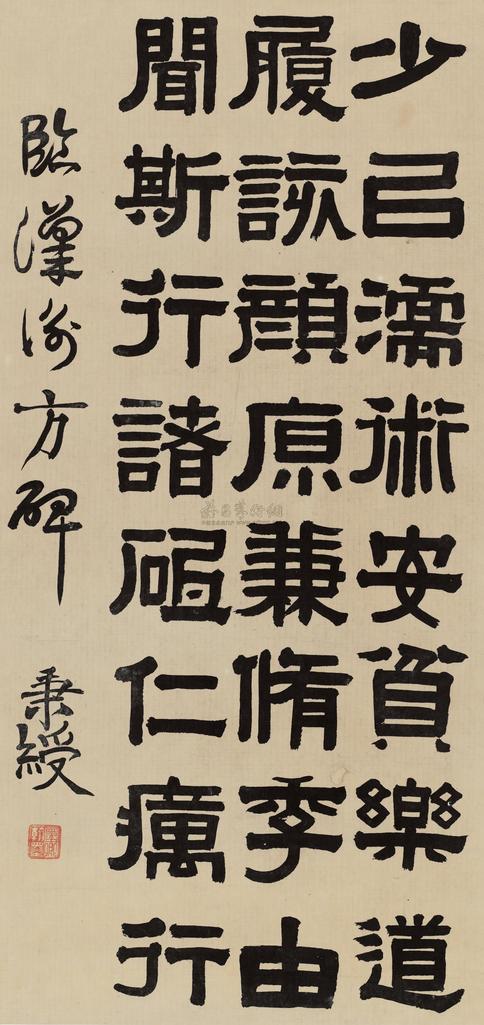 少㠯濡術安貧樂道
履該顏原兼脩季由
聞斯行諸砥仁癘行
臨漢衡方碑 秉綬